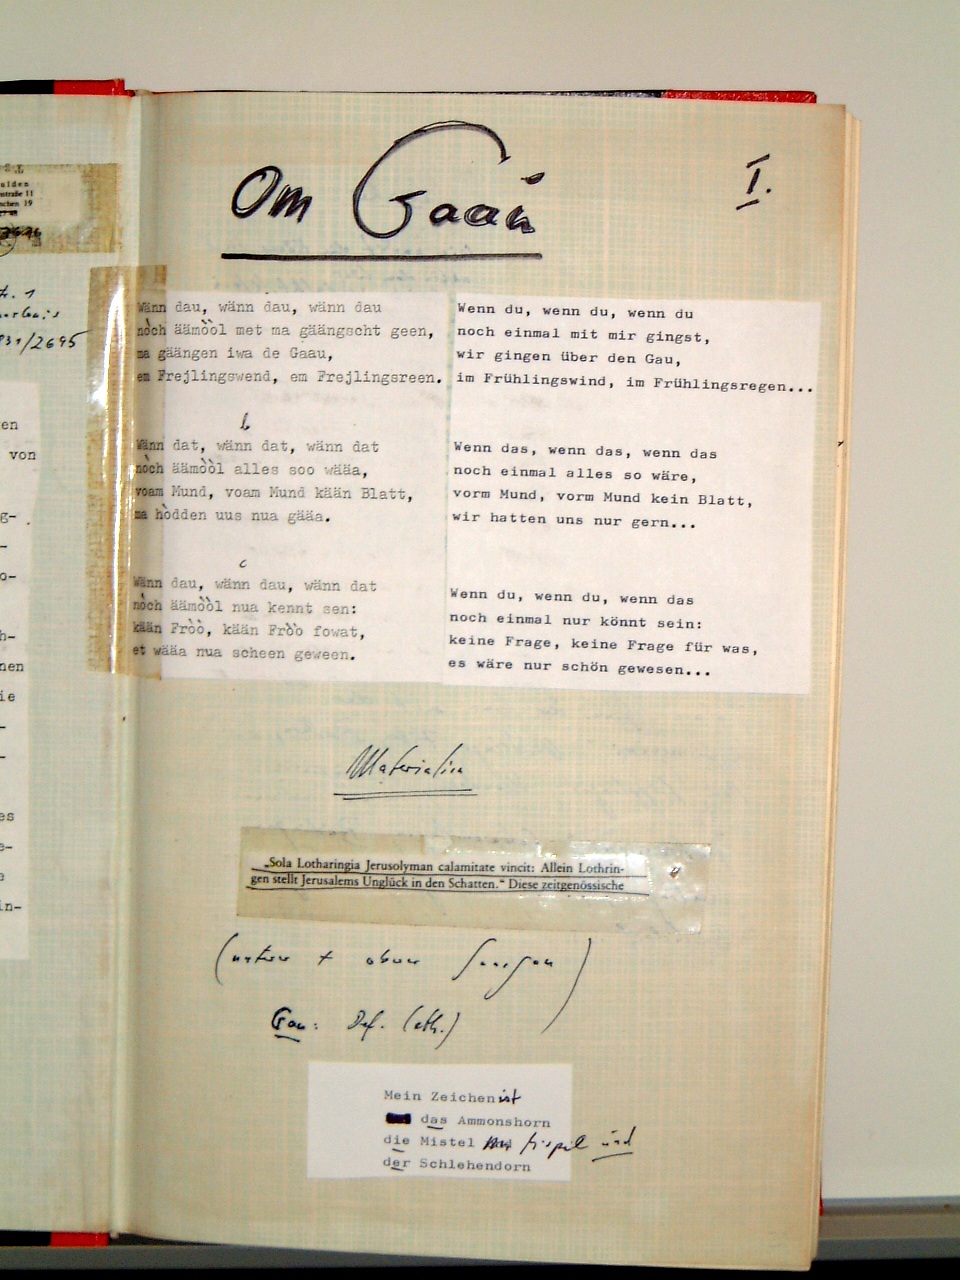 ulden
nstraße 11
nchen 19
31/2695
en
von
g-
o-
h-
nen
ie
es
e-
in-
Om Gaau
I.
Wänn dau, wänn dau, wänn dau
nòch äämòòl met ma gäängscht geen,
ma gäängen iwa de Gaau,
em Frejlingswend, em Frejlingsreen.
b
Wänn dat, wänn dat, wänn dat
nòch äämòòl alles soo wääa,
voam Mund, voam Mund kään Blatt,
ma hòdden uus nua gääa.
c
Wänn dau, wänn dau, wänn dat
nòch äämòòl nua kennt sen:
kään Fròò, kään Fròò fowat,
et wääa nua scheen geween.
Wenn du, wenn du, wenn du
noch einmal mit mir gingst,
wir gingen über den Gau,
im Frühlingswind, im Frühlingsregen...
Wenn das, wenn das, wenn das
noch einmal alles so wäre,
vorm Mund, vorm Mund kein Blatt,
wir hatten uns nur gern...
Wenn du, wenn du, wenn das
noch einmal nur könnt sein:
keine Frage, keine Frage für was,
es wäre nur schön gewesen...
Materialien
„Sola Lotharingia Jerusolyman calamitate vincit: Allein Lothrin-
gen stellt Jerusalems Unglück in den Schatten.“ Diese zeitgenössische
(unterer + oberer Saargau)
Gau: Def. (eth.)
Mein Zeichen ist
das Ammonshorn
die Mistel Mispel und
der Schlehendorn